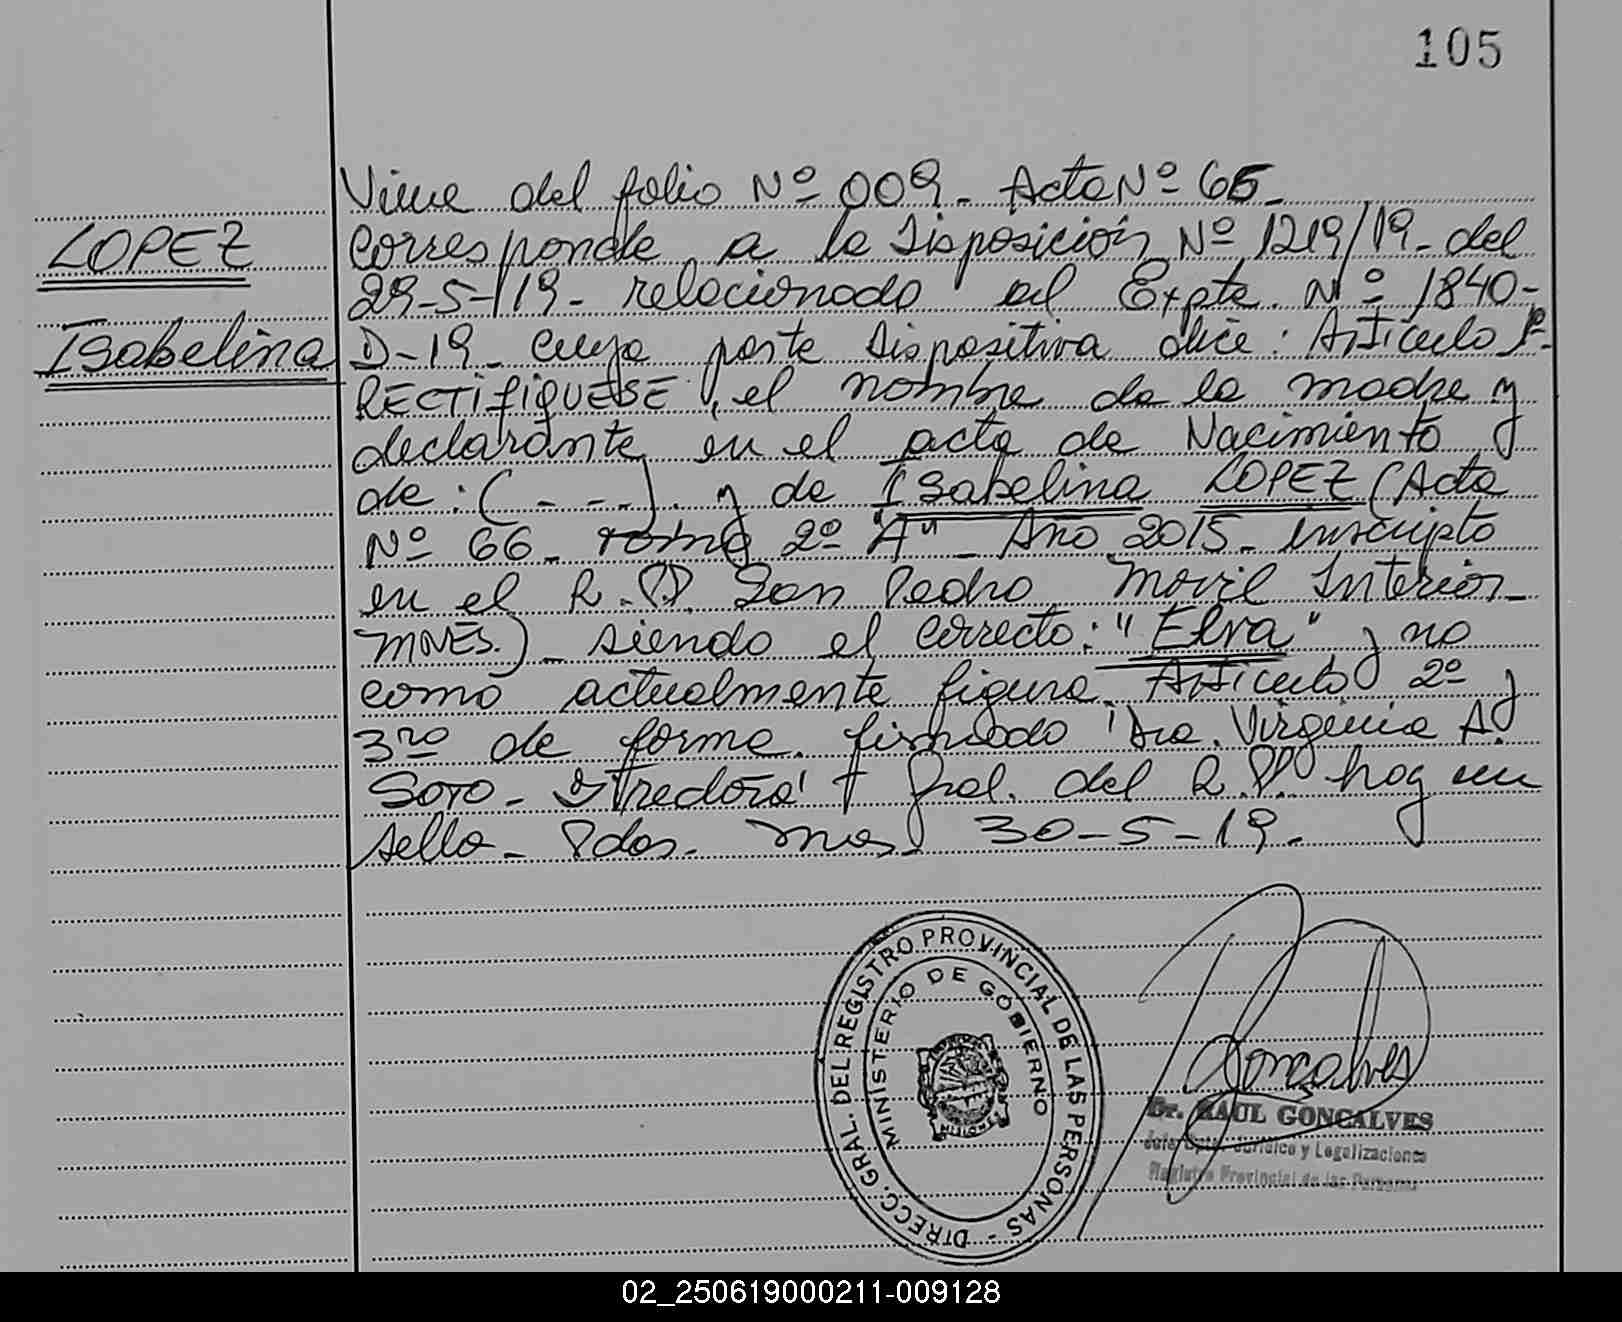 105
Viene del folio Nº 009. Acta Nº 65.
LOPEZ
Isabelina
Corresponde a la Disposición Nº 1219/19. del
29-5-19. relacionado al Expte. Nº 1840-
D-19. cuya parte dispositiva dice: Artículo 1º.
RECTIFIQUESE, el nombre de la madre y
declarante en el acta de Nacimiento
de: (- - -). y de Isabelina LOPEZ (Acta
Nº 66. tomo 2º "A" - Año 2015. inscripto
en el R.P. San Pedro Movil Interior.
MNES.). siendo el correcto: "Elva" y no
como actualmente figura. Artículo 2º y
3ro de forma. firmado Dra. Virginia A.
Soto. Directora Gral. del R.P. hay un
sello. Pdas. Mnes. 30-5-19.
DIRECC. GRAL. DEL REGISTRO PROVINCIAL DE LAS PERSONAS -
MINISTERIO DE GOBIERNO
MISIONES
Goncalves
Dr. RAUL GONCALVES
Jefe Dpto. Jurídico y Legalizaciones
Registro Provincial de las Personas
02_250619000211-009128